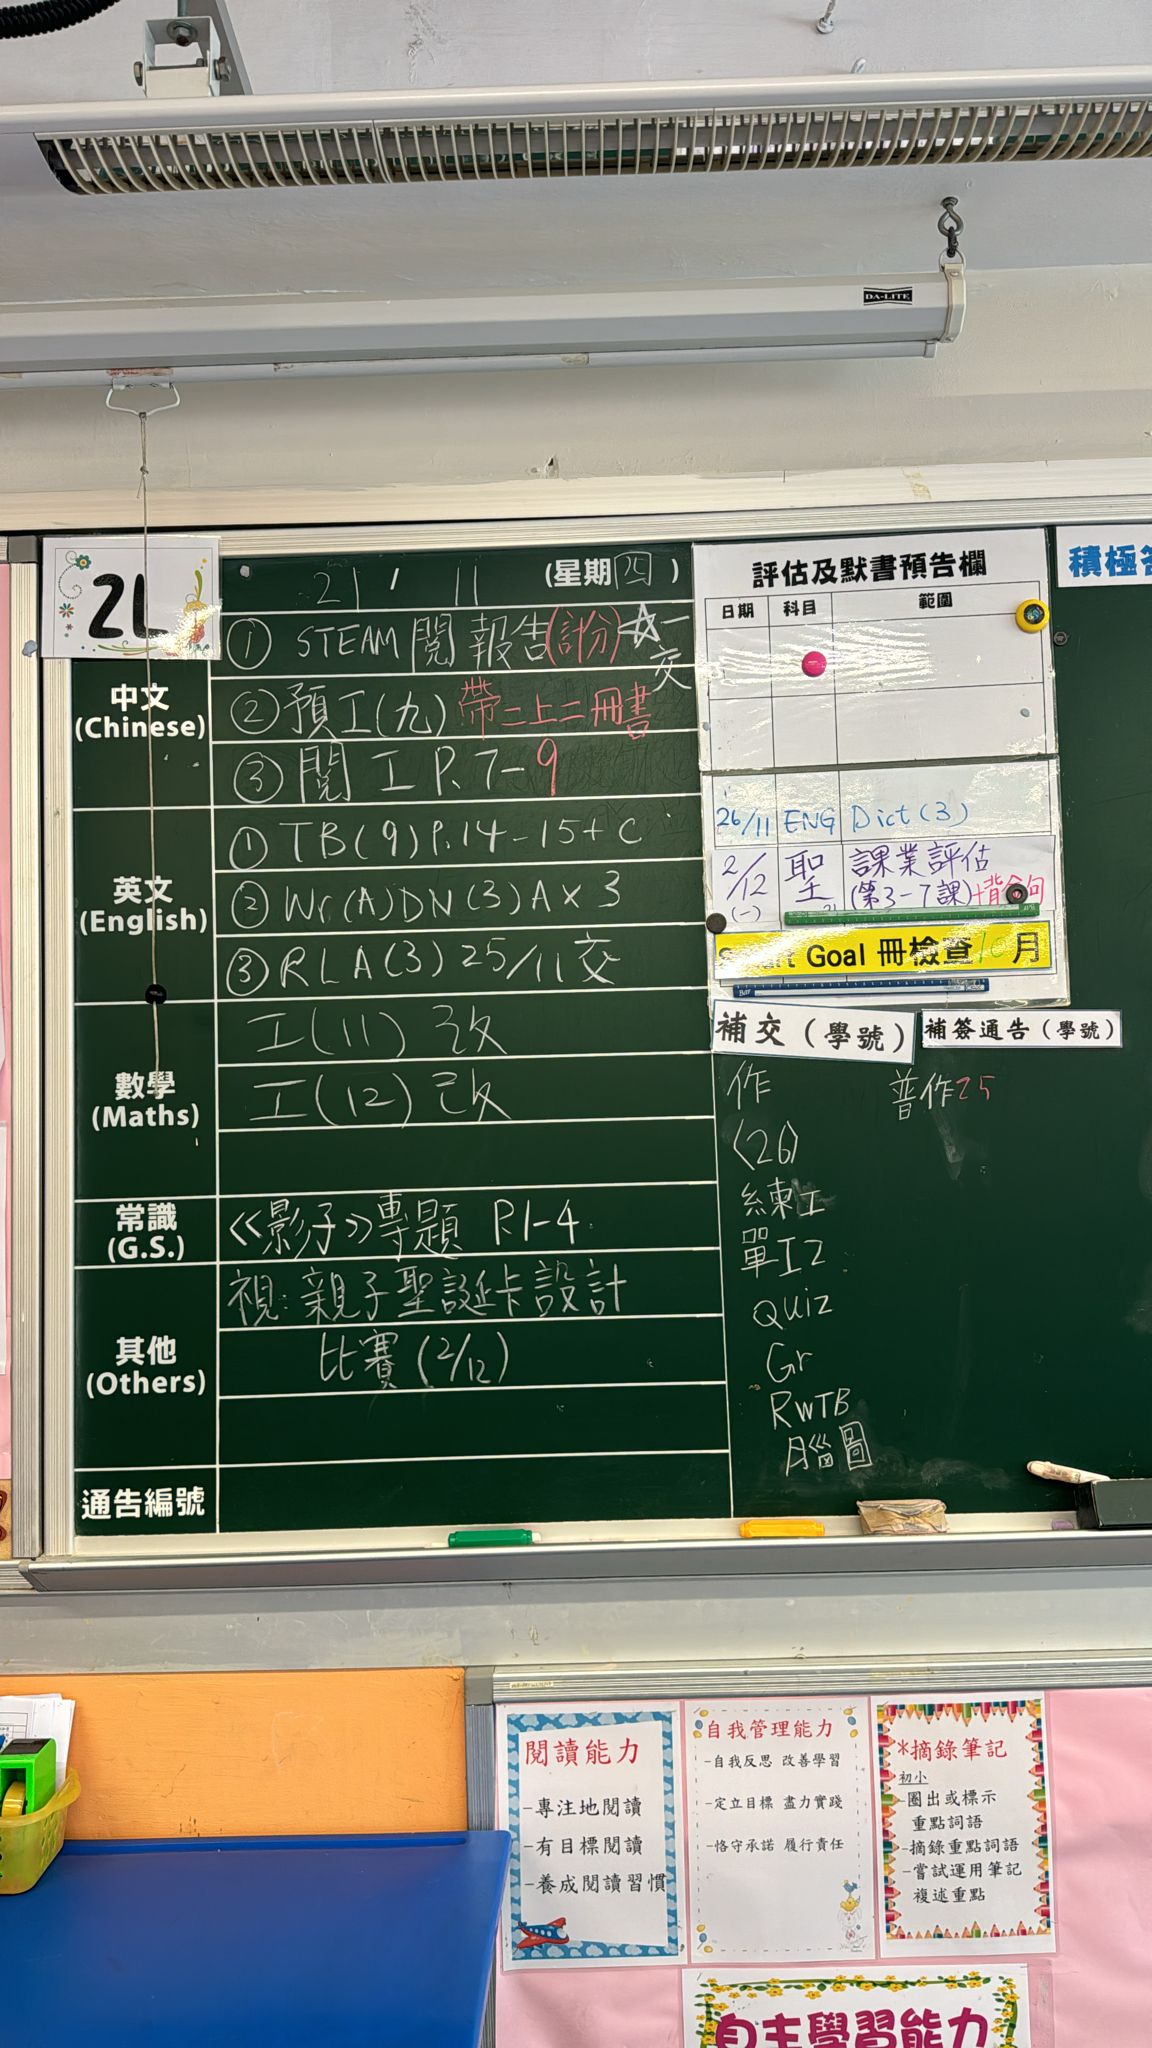 DA-LITE
2L
21 / 11 (星期四)
中文
(Chinese)
① STEAM 閱 報告(計分)☆一交
② 預工(九) 帶二上二冊書
③ 閱 工 P.7-9
英文
(English)
① TB(9)P.14-15+C
② Wr(A)DN(3)A×3
③ RLA(3) 25/11 交
數學
(Maths)
工(11) 改
工(12) 改
常識
(G.S.)
《影子》專題 P.1-4
其他
(Others)
視:親子聖誕卡設計
比賽(2/12)
通告編號
評估及默書預告欄
日期 科目 範圍
26/11 ENG Dict(3)
2/12 (一) 聖 課業評估
(第3-7課)+背金句
Goal 冊檢查 10月
積極
補交(學號) 補簽通告(學號)
作 普作25
(26)
練工
單工2
Quiz
Gr
RWTB
腦圖
閱讀能力
-專注地閱讀
-有目標閱讀
-養成閱讀習慣
自我管理能力
-自我反思 改善學習
-定立目標 盡力實踐
-恪守承諾 履行責任
*摘錄筆記
初小
-圈出或標示
重點詞語
-摘錄重點詞語
-嘗試運用筆記
複述重點
自主學習能力